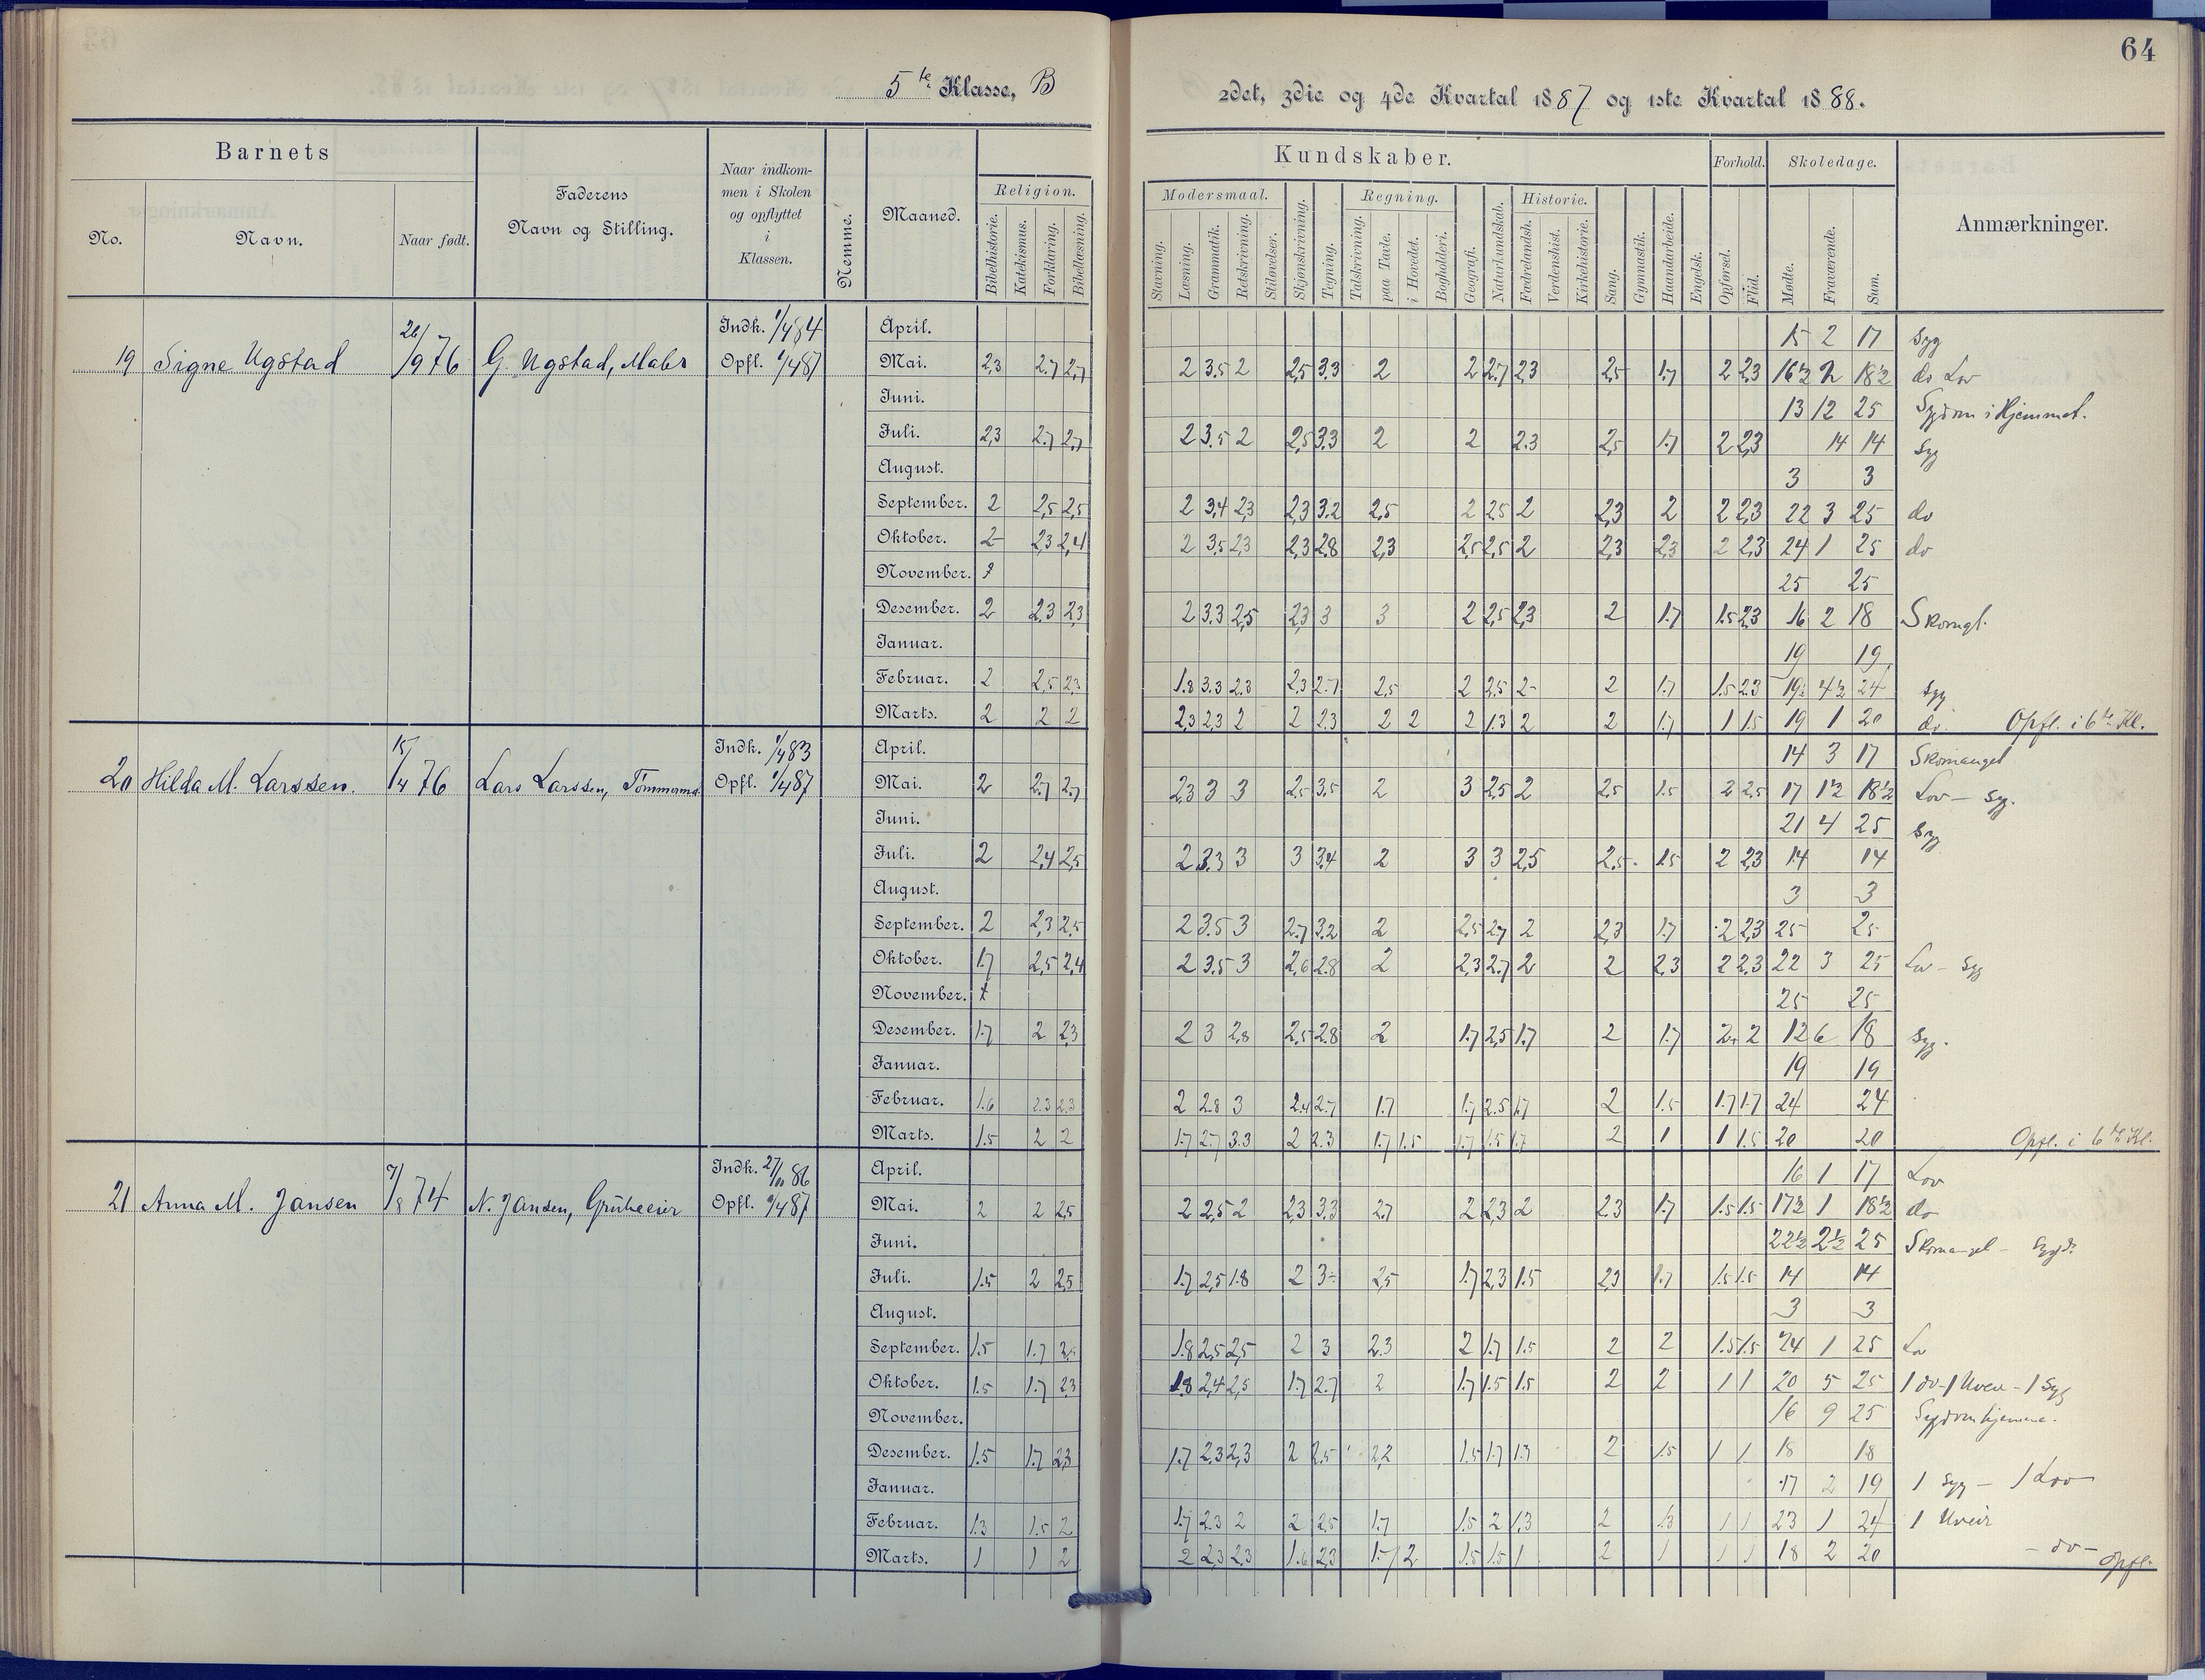 64
5te Klasse, B
2det, 3die og 4de Kvartal 1887 og 1ste Kvartal 1888.
Barnets
No.
Navn.
Naar født.
Faderens
Navn og Stilling.
Naar indkom-
men i Skolen
og opflyttet
i
Klassen.
Nemme.
Maaned.
Religion.
Bibelhistorie.
Katekismus.
Forklaring.
Bibellæsning.
Kundskaber.
Modersmaal.
Stavning.
Læsning.
Grammatik.
Retskrivning.
Stiløvelser.
Skjønskrivning.
Tegning.
Regning.
Talskrivning.
paa Tavle.
i Hovedet.
Bogholderi.
Geografi.
Naturkundskab.
Historie.
Fædrelandsh.
Verdenshist.
Kirkehistorie.
Sang.
Gymnastik.
Haandarbeide.
Engelsk.
Forhold.
Opførsel.
Flid.
Skoledage.
Mødte.
Fraværende.
Sum.
Anmærkninger.
19 Signe Ugstad 26/9 76 G. Ugstad, Maler Indk. 1/4 84
Opfl. 1/4 87
April. 15 2 17 Syg
Mai. 2,3 2.7 2,7 2 3.5 2 2,5 3.3 2 2 2.7 2,3 2,5 1.7 2 2,3 16½ 2 18½ do Lov
Juni. 13 12 25 Sygdom i Hjemmet.
Juli. 2,3 2.7 2,7 2 3.5 2 2,5 3.3 2 2 2.3 2,5 1.7 2 2,3 14 14 Syg
August. 3 3
September. 2 2,5 2,5 2 3,4 2,3 2,3 3.2 2,5 2 2,5 2 2,3 2 2 2,3 22 3 25 do
Oktober. 2 2,3 2,4 2 3,5 2,3 2,3 2.8 2,3 2,5 2,5 2 2,3 2,3 2 2,3 24 1 25 do
November. 25 25
Desember. 2 2.3 2,3 2 3.3 2,5 2,3 3 3 2 2,5 2,3 2 1.7 1.5 2.3 16 2 18 Skomgl.
Januar. 19 19
Februar. 2 2,5 2,3 1.8 3.3 2.3 2,3 2.7 2,5 2 2,5 2 2 1.7 1.5 2.3 19½ 4½ 24 Syg
Marts. 2 2 2 2,3 2,3 2 2 2.3 2 2 2 1.3 2 2 1.7 1 1.5 19 1 20 do Opfl. i 6te Kl.
20 Hilda M. Larssen. 15/4 76 Lars Larssen, Tømmermd. Indk. 1/4 83
Opfl. 1/4 87
April. 14 3 17 Skomangel
Mai. 2 2.7 2.7 2,3 3 3 2.5 3.5 2 3 2,5 2 2,5 1.5 2 2.5 17 1½ 18½ Lov - Syg.
Juni. 21 4 25 Syg
Juli. 2 2,4 2,5 2 3.3 3 3 3,4 2 3 3 2,5 2,5 1.5 2 2,3 14 14
August. 3 3
September. 2 2,3 2,5 2 3.5 3 2.7 3.2 2 2,5 2,7 2 2,3 1.7 2 2,3 25 25
Oktober. 1.7 2,5 2,4 2 3.5 3 2,6 2.8 2 2,3 2.7 2 2 2,3 2 2,3 22 3 25 Lov - Syg
November. 25 25
Desember. 1.7 2 2,3 2 3 2,8 2,5 2.8 2 1.7 2,5 1.7 2 1.7 2 2 12 6 18 Syg.
Januar. 19 19
Februar. 1.6 2.3 2.3 2 2.8 3 2.4 2.7 1.7 1.7 2.5 1.7 2 1.5 1.7 1.7 24 24
Marts. 1.5 2 2 1.7 2.7 3.3 2 2.3 1.7 1.5 1.7 1.5 1.7 2 1 1 1.5 20 20 Opfl. i 6te Kl.
21 Anna M. Jansen 7/8 74 N. Jansen, Grübeeier Indk. 27/10 86
Opfl. 1/4 87
April. 16 1 17 Lov
Mai. 2 2 2,5 2 2,5 2 2,3 3.3 2.7 2 2,3 2 2.3 1.7 1.5 1.5 17½ 1 18½ do
Juni. 22½ 2½ 25 Skomangel - Sygd.
Juli. 1.5 2 2,5 1.7 2,5 1.8 2 3 2,5 1.7 2,3 1.5 2,3 1.7 1.5 1.5 14 14
August. 3 3
September. 1.5 1.7 2,5 1.8 2,5 2,5 2 3 2.3 2 1.7 1.5 2 2 1.5 1.5 24 1 25 Lov
Oktober. 1.5 1.7 2,3 1.8 2,4 2,5 1.7 2.7 2 1.7 1.5 1.5 2 2 1 1 20 5 25 1 do - 1 Uveir - 1 Syg
November. 16 9 25 Sygdom hjemme.
Desember. 1.5 1.7 2,3 1.7 2.3 2,3 2 2,5 2,2 1.5 1.7 1.3 2 1.5 1 1 18 18
Januar. 17 2 19 1 Syg - 1 Lov
Februar. 1.3 1.5 2 1.7 2.3 2 2 2,5 1.7 1.5 2 1,3 2 1.3 1 1 23 1 24 1 Uveir
Marts. 1 1 2 2 2,3 2.3 1.6 2,3 1.7 2 1.5 1.5 1 2 1 1 1 18 2 20 - do - Opfl.